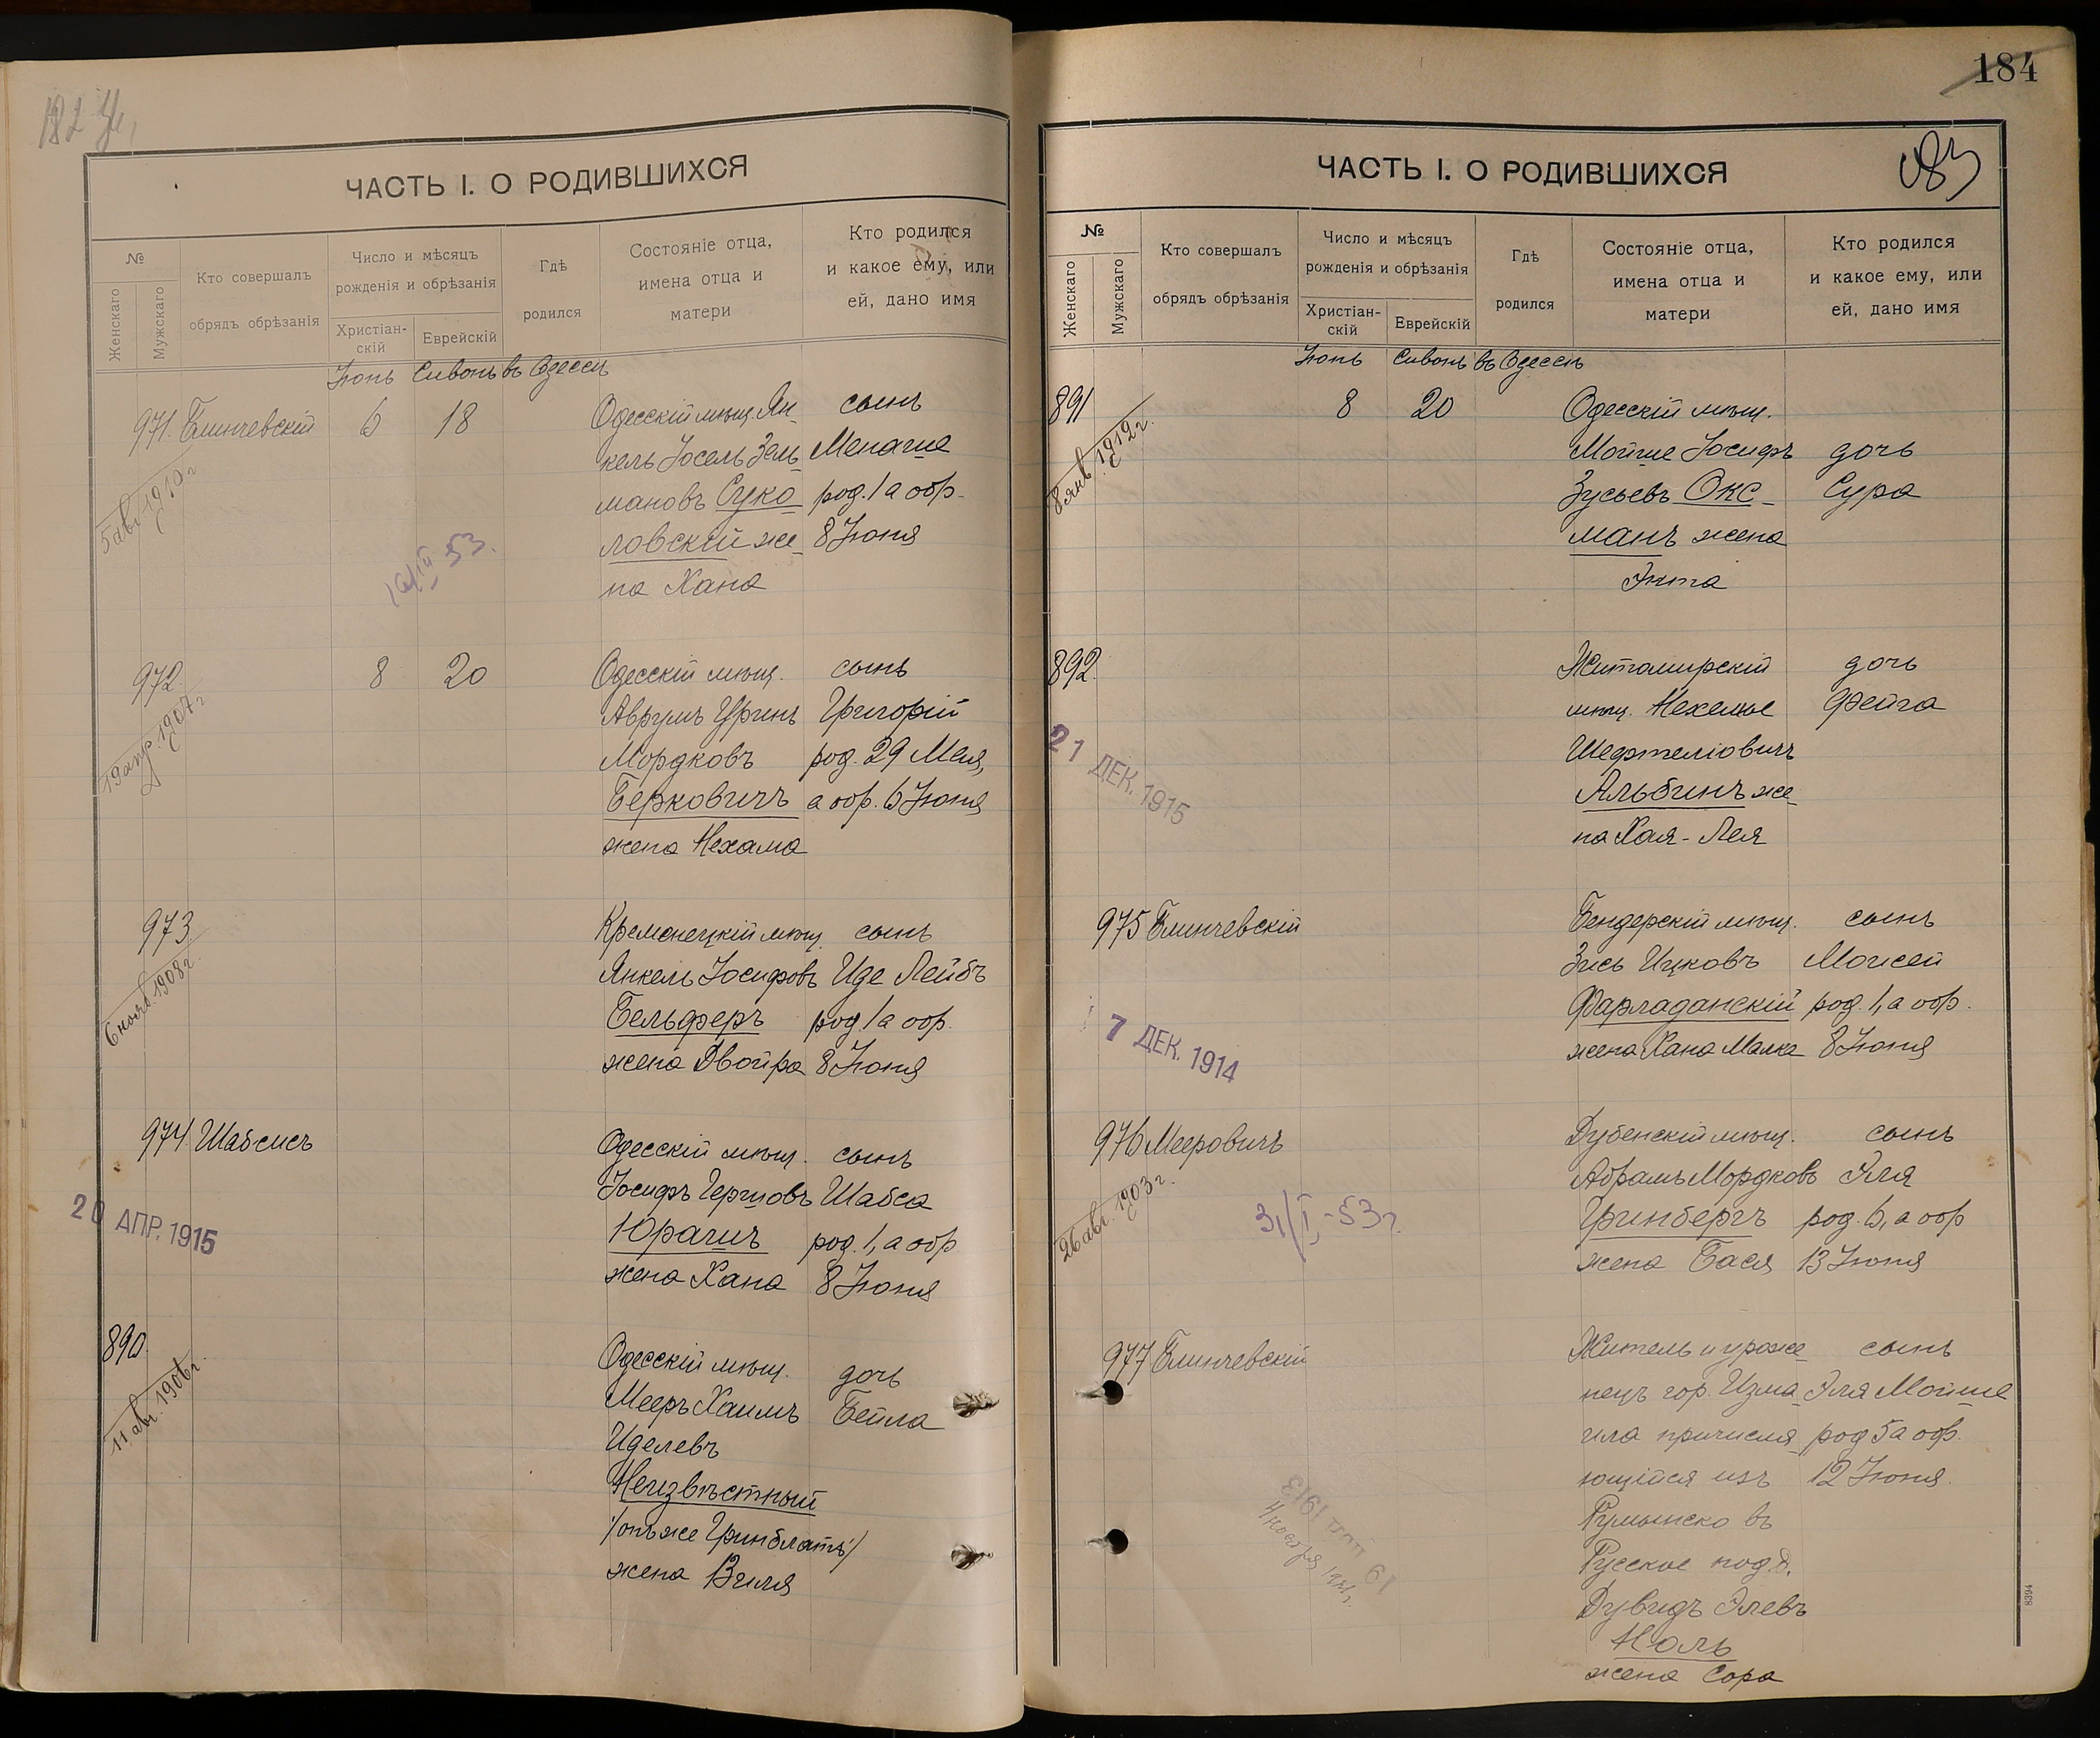 ЧАСТЬ I. О РОДИВШИХСЯ
№
Женскаго
Мужскаго
Кто совершалъ
обрядъ обрѣзанія
Число и мѣсяцъ
рожденія и обрѣзанія
Христіан-
скій
Еврейскій
Гдѣ
родился
Состояніе отца,
имена отца и
матери
Кто родился
и какое ему, или
ей, дано имя
Іюнь Сивонь въ Одессѣ
971. Блинчевскій 6 18 Одесскій мѣщ. Ян- сынъ
кель Іосель Зель- Менаше
мановъ Суко- род. 1 а обр.
ловскій же- 8 Іюня
на Хана
5 авг. 1910 г.
53.
972. 8 20 Одесскій мѣщ. сынъ
Аврумъ Уринъ Григорій
Мордковъ род. 29 Мая,
Берковичъ а обр. 6 Іюня
жена Нехама
19 апр. 1907 г.
973 Кременецкій мѣщ. сынъ
Янкель Іосифовъ Иде Лейбъ
Бельферъ род. 1 а обр.
жена Двойра 8 Іюня
6 нояб. 1908 г.
974. Шабсисъ Одесскій мѣщ. сынъ
Іосифъ Гершовъ Шабса
Юрашъ род. 1, а обр.
жена Хана 8 Іюня
20 АПР. 1915
890. Одесскій мѣщ. дочь
Мееръ Хаимъ Бейла
Иделевъ
Неизвѣстный
/онъ же Гринблатъ/
жена Виля
11 авг. 1906 г.
184
ЧАСТЬ I. О РОДИВШИХСЯ
183
№
Женскаго
Мужскаго
Кто совершалъ
обрядъ обрѣзанія
Число и мѣсяцъ
рожденія и обрѣзанія
Христіан-
скій
Еврейскій
Гдѣ
родился
Состояніе отца,
имена отца и
матери
Кто родился
и какое ему, или
ей, дано имя
Іюнь Сивонь въ Одессѣ
891 8 20 Одесскій мѣщ.
Мойше Іосифъ дочь
Зусьевъ Окс- Сура
манъ жена
Энта
8 янв. 1912 г.
892. Житомирскій дочь
мѣщ. Нехемье Фейга
Шефтеліовичъ
Альбинъ же-
на Хая-Лея
21 ДЕК. 1915
975 Блинчевскій Бендерскій мѣщ. сынъ
Зись Ицковъ Моисей
Фарладанскій род. 1, а обр.
жена Хана Малка 8 Іюня
7 ДЕК. 1914
976 Мееровичъ Дубенскій мѣщ. сынъ
Абрамъ Мордковъ Эля
Гринбергъ род. 6, а обр
жена Бася 13 Іюня
26 авг. 1903 г.
31/I-53 г.
977 Блинчевскій Житель и уроже- сынъ
нецъ гор. Изма- Эля Мойше
ила причисля- род 5 а обр.
ющійся изъ 12 Іюня.
Румынско въ
Русское подд.
Дувидъ Элевъ
Ноль
жена Сора
8394